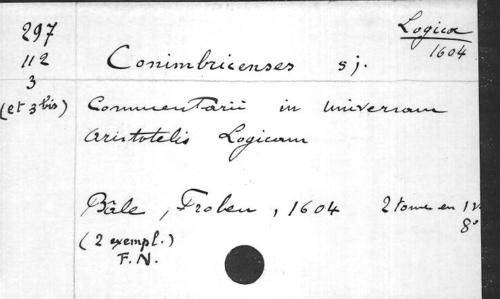 297
112
3
(et 3 bis)
Logica
1604
Conimbricenses sj.
Commentarii in universam
Aristotelis Logicam
Bâle, Froben, 1604 2 tomes en 1 v.
8°
(2 exempl.)
F.N.